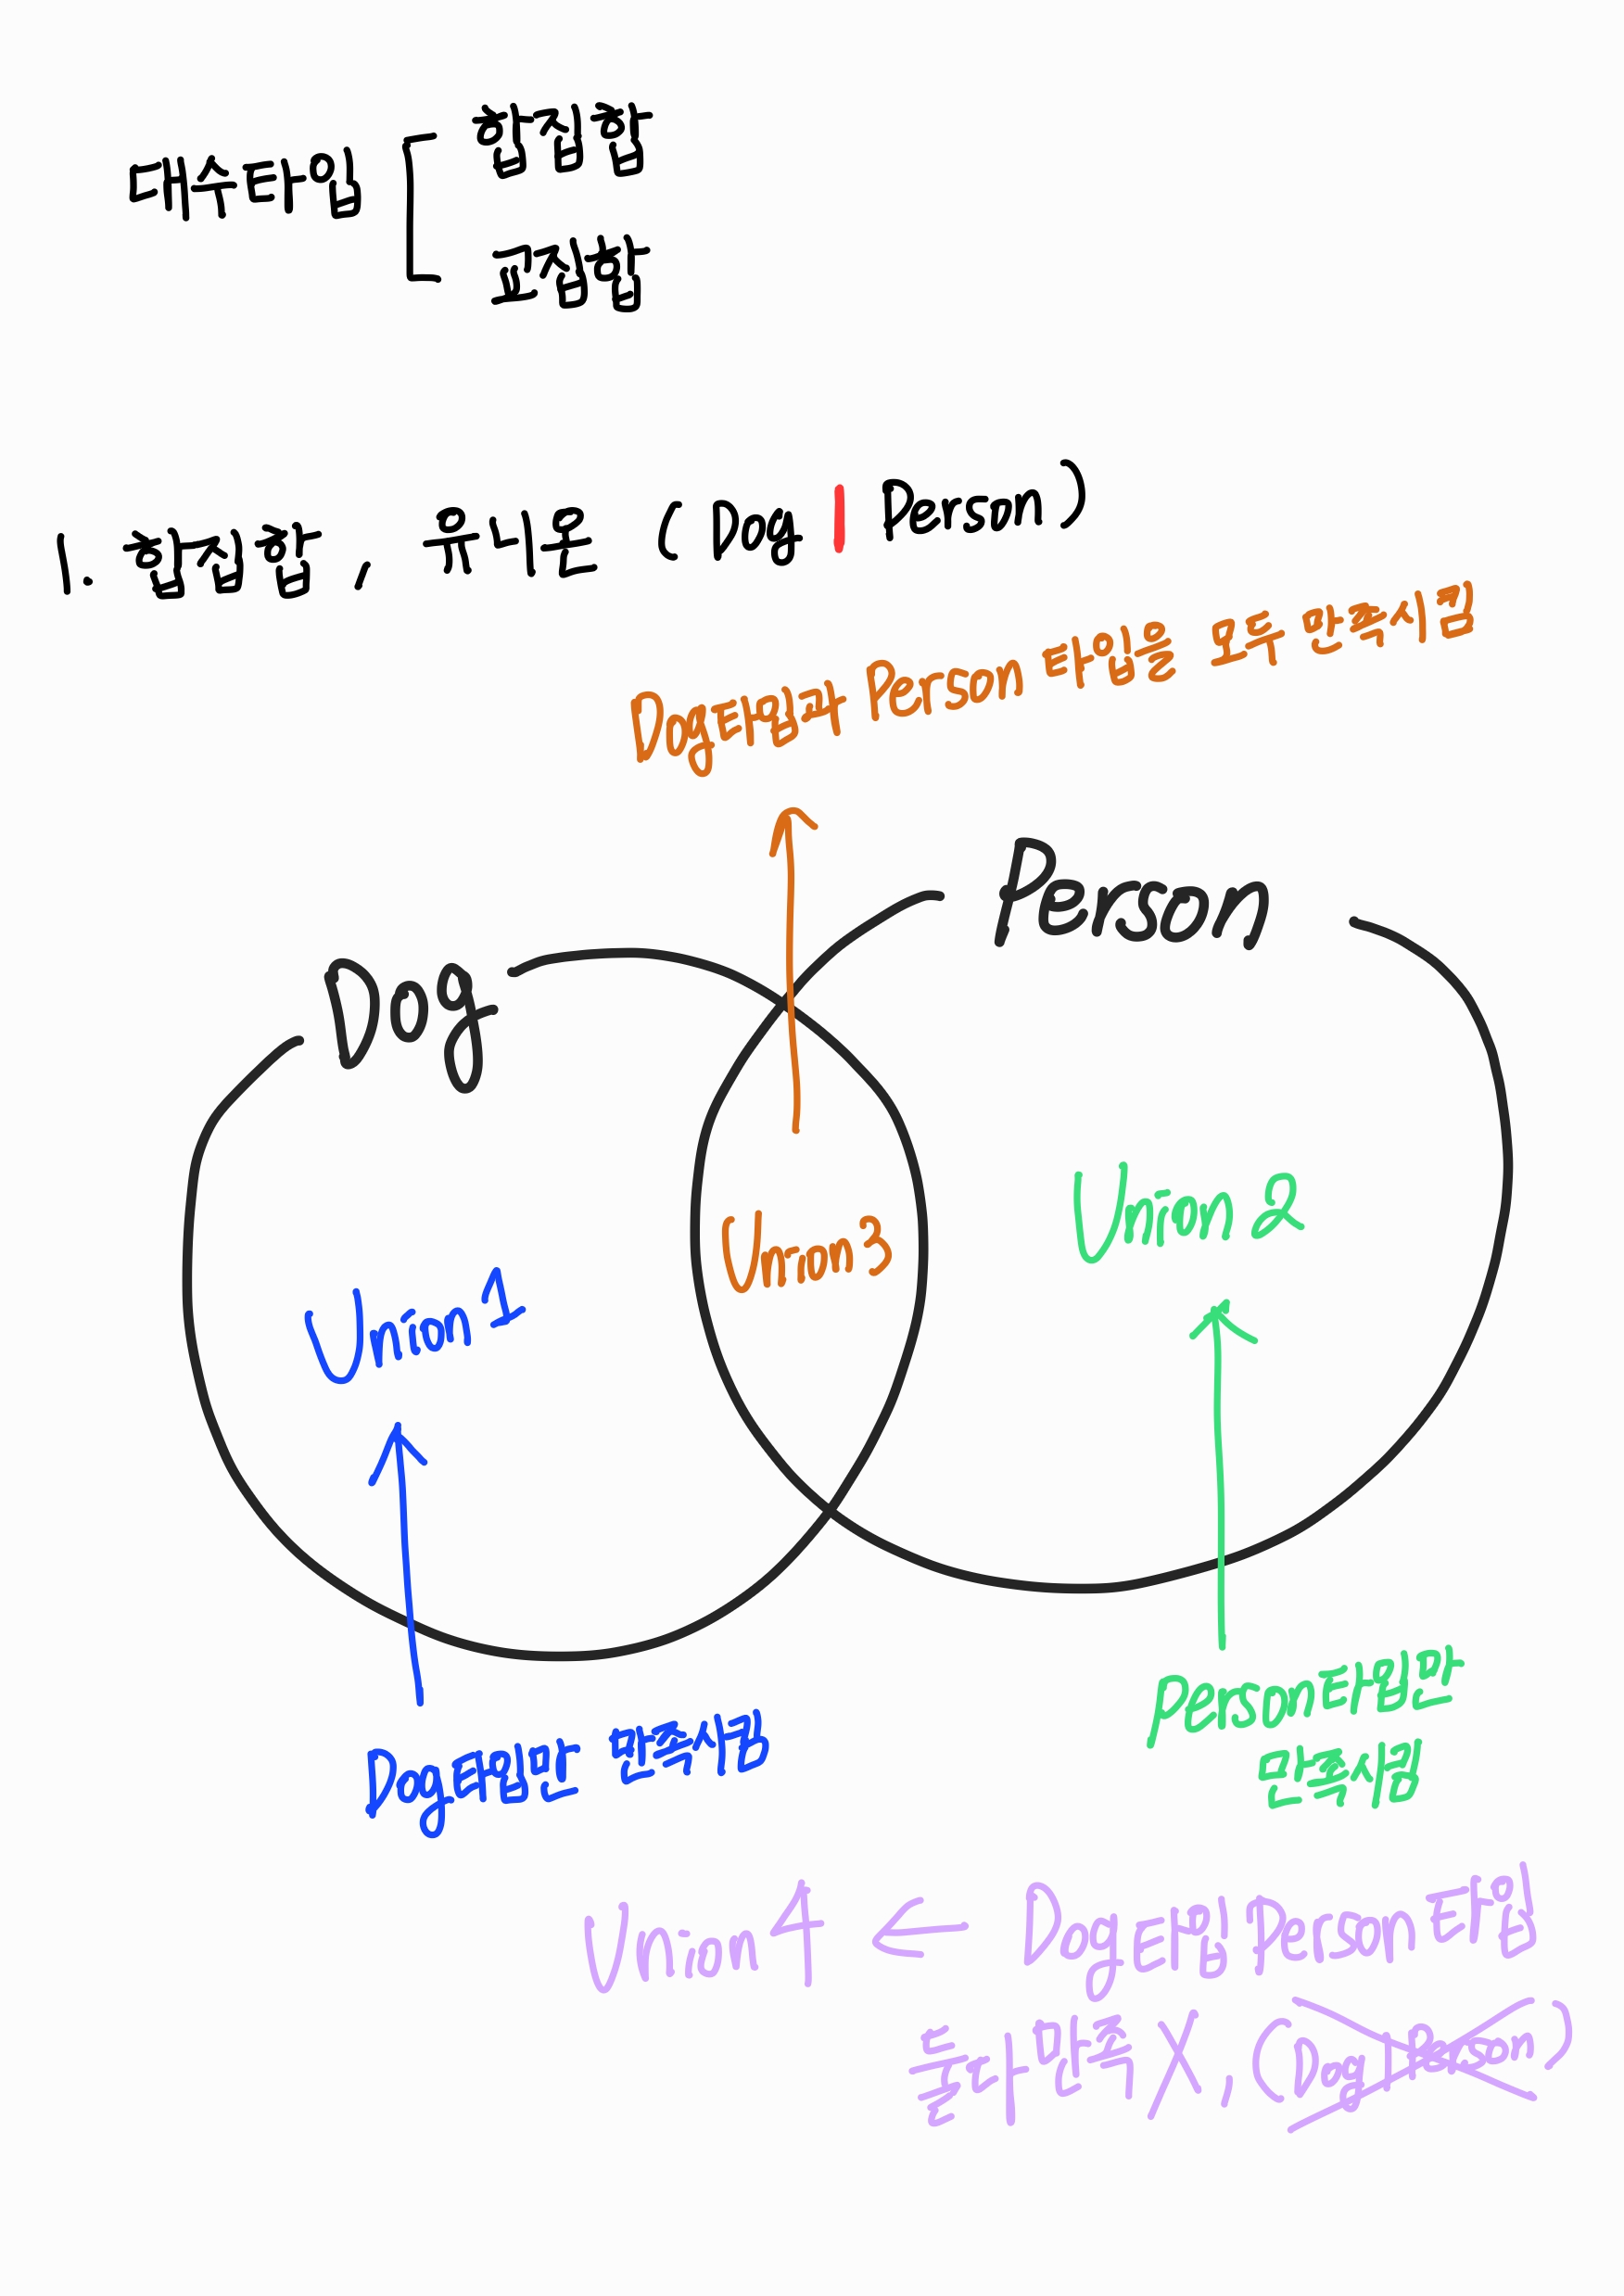 대수타입
합집합
교집합
1. 합집합, 유니온 (Dog | Person)
Dog타입과 Person 타입을 모두 만족시킴
Person
Dog
Union 2
Union3
Union 1
Person타입만
만족시킴
Dog타입만 만족시킴
Union 4 ← Dog타입 Person 타입
둘다 만족X, (Dog | Person)